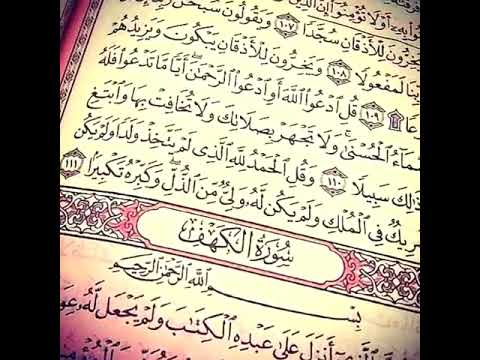 أولا تؤمنوا إن الذين
يخرون للأذقان سجدا ۝١٠٧ ويقولون سبحن
لمفعولا ۝١٠٨ ويخرون للأذقان يبكون ويزيدهم
۝١٠٩ قل ادعوا الله أو ادعوا الرحمن أيا ما تدعوا فله
الحسنى ولا تجهر بصلاتك ولا تخافت بها وابتغ
ذلك سبيلا ۝١١٠ وقل الحمد لله الذي لم يتخذ ولدا ولم يكن
في الملك ولم يكن له ولي من الذل وكبره تكبيرا ۝١١١
سورة الكهف
بسم الله الرحمن الرحيم
أنزل على عبده الكتب ولم يجعل له